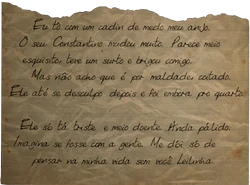 Eu tô com um cadin de medo meu anjo.
O seu Constantino mudou muito. Parece meio
esquisito, teve um surto e brigou comigo.
Mas não acho que é por maldade, coitado.
Ele até se desculpo depois e foi embora pro quarto.
Ele só tá triste e meio doente. Ainda pálido.
Imagina se fosse com a gente. Me dói só de
pensar na minha vida sem você Leilinha.